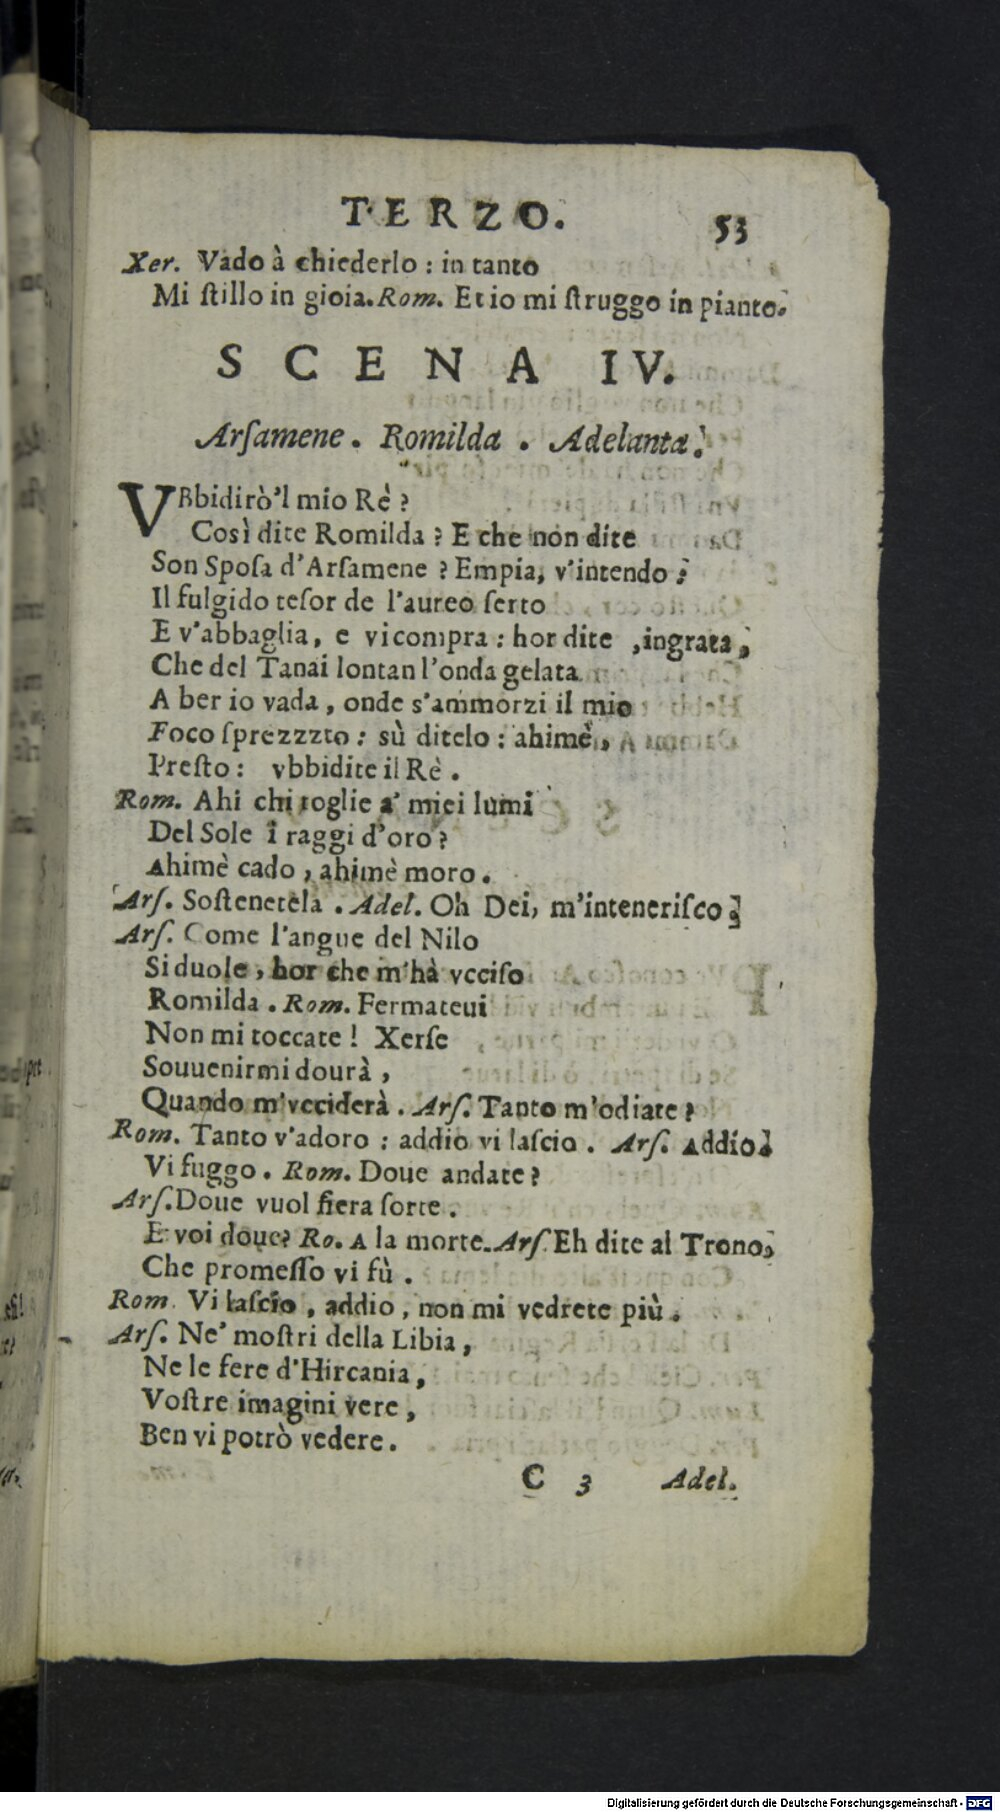 TERZO. 53
Xer. Vado à chiederlo : in tanto
Mi ſtillo in gioia. Rom. Et io mi ſtruggo in pianto.
SCENA IV.
Arſamene. Romilda. Adelanta.
VBbidirò'l mio Rè ?
Così dite Romilda ? E che non dite
Son Spoſa d'Arſamene ? Empia, v'intendo :
Il fulgido teſor de l'aureo ſerto
E v'abbaglia, e vi compra : hor dite , ingrata ,
Che del Tanai lontan l'onda gelata
A ber io vada , onde s'ammorzi il mio
Foco ſprezzzto : sù ditelo : ahimè ,
Preſto : vbbidite il Rè .
Rom. Ahi chi toglie a' miei lumi
Del Sole i raggi d'oro ?
Ahimè cado , ahimè moro .
Arſ. Soſtenetela . Adel. Oh Dei, m'inteneriſco.
Arſ. Come l'angue del Nilo
Si duole , hor che m'hà vcciſo
Romilda . Rom. Fermateui
Non mi toccate ! Xerſe
Souuenirmi dourà ,
Quando m'vcciderà . Arſ. Tanto m'odiate ?
Rom. Tanto v'adoro : addio vi laſcio . Arſ. Addio.
Vi fuggo . Rom. Doue andate ?
Arſ. Doue vuol fiera ſorte .
E voi doue? Ro. A la morte. Arſ. Eh dite al Trono,
Che promeſſo vi fù .
Rom. Vi laſcio , addio , non mi vedrete più .
Arſ. Ne' moſtri della Libia ,
Ne le fere d'Hircania ,
Voſtre imagini vere ,
Ben vi potrò vedere .
C 3 Adel.
Digitalisierung gefördert durch die Deutsche Forschungsgemeinschaft - DFG